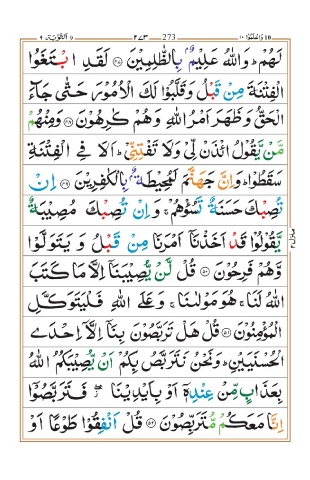 التوبة ٩ ٢٤٣ 273 واعلموا ١٠
لَهُمْ ؕ وَاللّٰهُ عَلِیْمٌۢ بِالظّٰلِمِیْنَ ﴿۴۷﴾ لَقَدِ ابْتَغَوُا
الْفِتْنَةَ مِنْ قَبْلُ وَقَلَّبُوْا لَكَ الْاُمُوْرَ حَتّٰی جَآءَ
الْحَقُّ وَظَهَرَ اَمْرُ اللّٰهِ وَهُمْ كٰرِهُوْنَ ﴿۴۸﴾ وَمِنْهُمْ
مَّنْ یَّقُوْلُ ائْذَنْ لِّیْ وَلَا تَفْتِنِّیْ ؕ اَلَا فِی الْفِتْنَةِ
سَقَطُوْا ؕ وَاِنَّ جَهَنَّمَ لَمُحِیْطَةٌۢ بِالْكٰفِرِیْنَ ﴿۴۹﴾ اِنْ
تُصِبْكَ حَسَنَةٌ تَسُؤْهُمْ ۚ وَاِنْ تُصِبْكَ مُصِیْبَةٌ
یَّقُوْلُوْا قَدْ اَخَذْنَاۤ اَمْرَنَا مِنْ قَبْلُ وَیَتَوَلَّوْا
وَّهُمْ فَرِحُوْنَ ﴿۵۰﴾ قُلْ لَّنْ یُّصِیْبَنَاۤ اِلَّا مَا كَتَبَ
اللّٰهُ لَنَا ۚ هُوَ مَوْلٰىنَا ۚ وَعَلَی اللّٰهِ فَلْیَتَوَكَّلِ
الْمُؤْمِنُوْنَ ﴿۵۱﴾ قُلْ هَلْ تَرَبَّصُوْنَ بِنَاۤ اِلَّاۤ اِحْدَی
الْحُسْنَیَیْنِ ؕ وَنَحْنُ نَتَرَبَّصُ بِكُمْ اَنْ یُّصِیْبَكُمُ اللّٰهُ
بِعَذَابٍ مِّنْ عِنْدِهٖۤ اَوْ بِاَیْدِیْنَا ۖ فَتَرَبَّصُوْۤا
اِنَّا مَعَكُمْ مُّتَرَبِّصُوْنَ ﴿۵۲﴾ قُلْ اَنْفِقُوْا طَوْعًا اَوْ